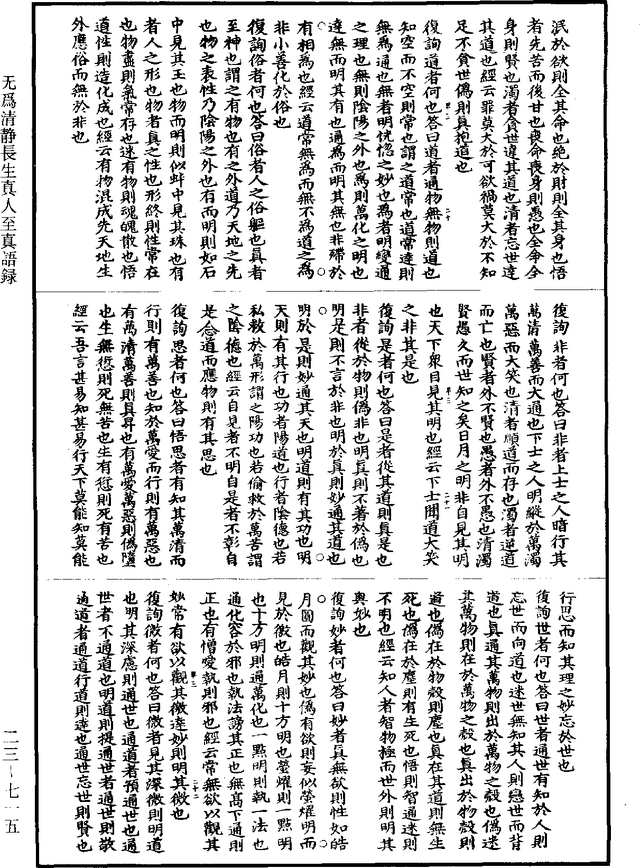 泯於欲則全其命也絶於財則全其身也悟
者先苦而後甘也喪命喪身則愚也全命全
身則賢也濁者貪世違其道也清者忘世達
其道也經云罪莫大於可欲禍莫大於不知
足不貪世僞則真抱道也
復詢道者何也荅曰道者通物無物則道也
知空而不空則常也謂之道常也道常達則
無爲也通無者明恍惚之妙也爲者明變通
之理也無則陰陽之外也爲則萬化之明也
達無而明其有也通爲而明其無也非滯於
有相爲也經云道常無爲而無不爲道之爲
非小善化於俗也
復詢俗者何也荅曰俗者人之俗軀也真者
至神也謂之有物也有之外道乃天地之先
也物之表性乃陰陽之外也有而明則如石
中見其玉也物而明則似蚌中見其珠也有
者人之形也物者真之性也形終則性常在
也物盡則氣常存也迷有物則魂魄散也悟
道性則造化成也經云有物混成先天地生
外應俗而無於非也
復詢非者何也荅曰非者上士之人暗行其
萬清萬善而大通也下士之人明縱於萬濁
萬惡而大笑也清者順道而存也濁者逆道
而亡也賢者外不賢也愚者外不愚也清濁
賢愚久而世知之矣日月之明非自見其明
也天下衆目見其明也經云下士聞道大笑
之非其是也
復詢是者何也荅曰是者從其道則真是也
非者從於物則僞非也明真則不著於僞也
明是則不言於非也明於真則妙通其道也
明於是則妙通其天也明道則有其功也明
天則有其行也功者陽道也行者陰德也若
私救於萬形謂之陽功也若倫救於萬苦謂
之陰德也經云自見者不明自是者不彰自
是合道而應物則有其思也
復詢思者何也荅曰悟思者有知其萬清而
行則有萬善也知於萬愛而行則有萬惡也
有萬清萬善則真昇也有萬愛萬惡則僞墮
也生無愆則死無苦也生有愆則死有苦也
經云吾言甚易知甚易行天下莫能知莫能
行思而知其理之妙忘於世也
復詢世者何也荅曰世者通世有知於人則
忘世而向道也迷世無知其人則戀世而背
道也真通其萬物則出於萬物之殼也僞迷
其萬物則在於萬物之殼也真出於物殼則
道也僞在於物殼則塵也真在其道則無生
死也僞在於塵則有生死也悟則智通迷則
不明也經云知人者智物極而世外則明其
與妙也
復詢妙者何也荅曰妙者真無欲則性如皓
月圓而觀其妙也僞有欲則妄似螢燿明而
見於徼也皓月則十方明也螢燿則一點明
也十方明則通萬化也一點明則執一法也
通化容於邪也執法謗其正也無高下通則
正也有憎愛執則邪也經云常無欲以觀其
妙常有欲以觀其徼達妙則明其微也
復詢微者何也荅曰微者見其深微則明道
也明其深慮則通世也通道者預通世也通
世者不通道也明道則提通世者通世則敬
通道者通道行道則達也通世忘世則賢也
无爲清靜長生真人至真語録
二三—七一五